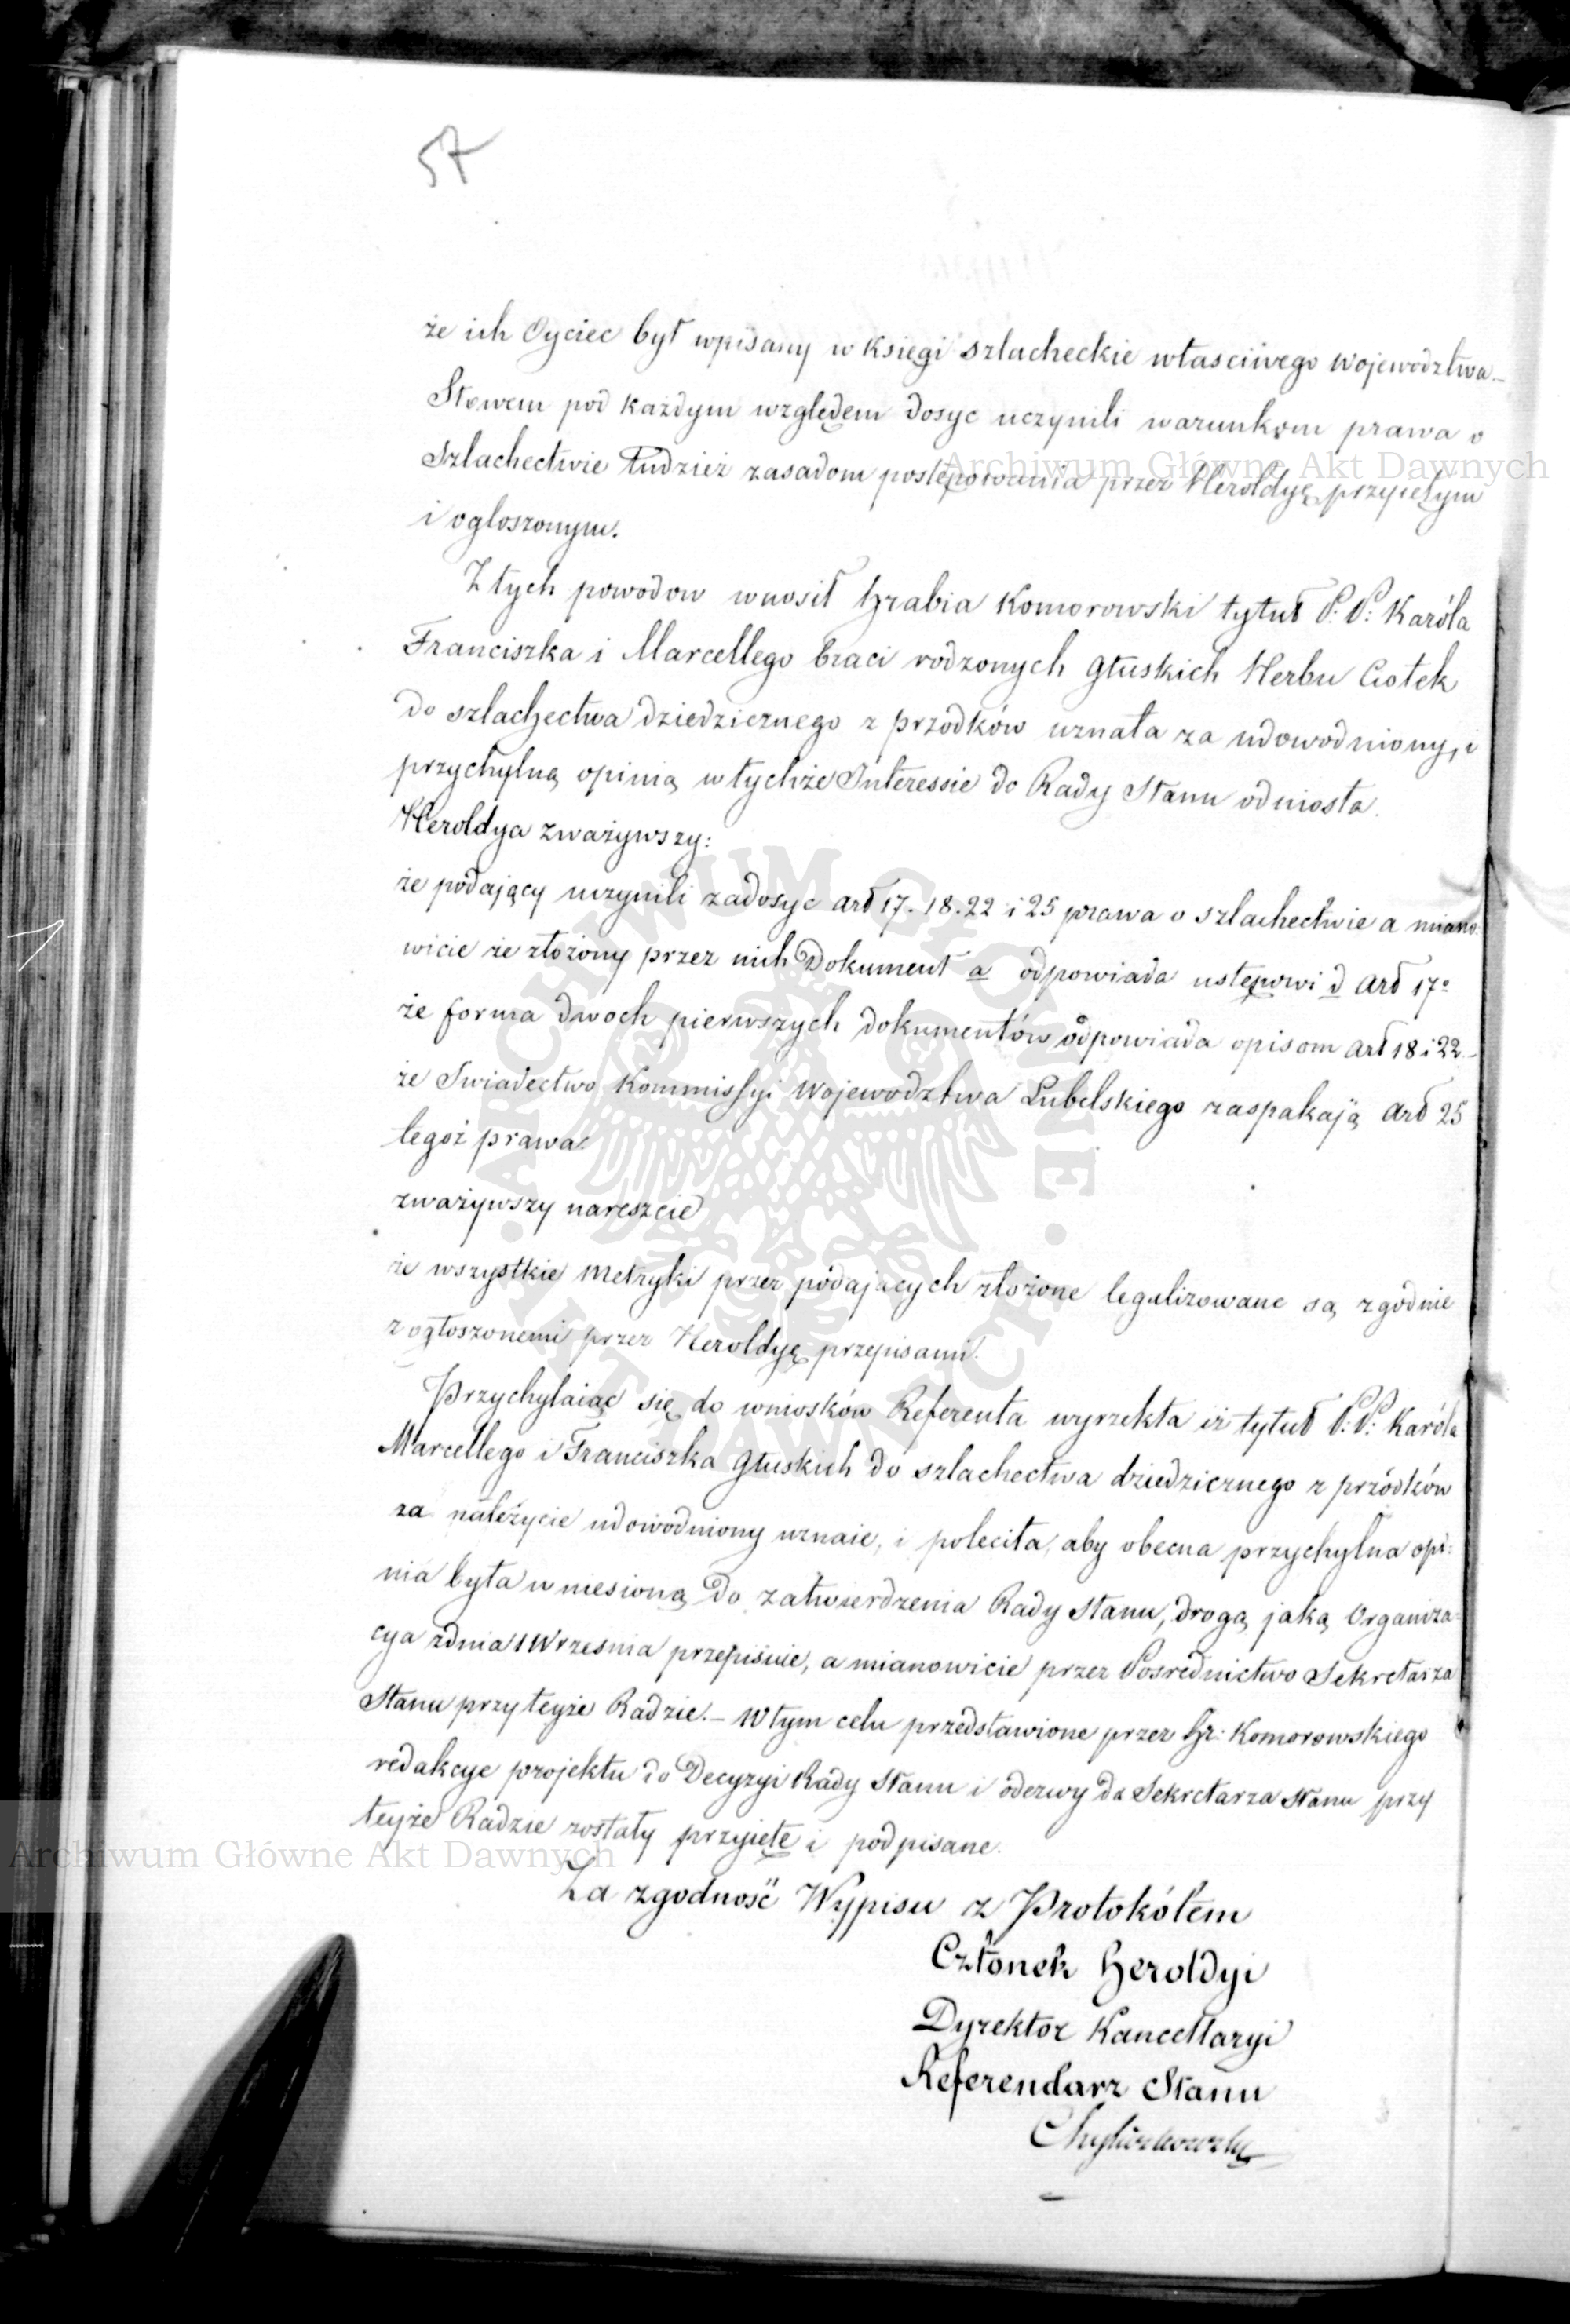 57
że ich Oyciec był wpisany w księgi szlacheckie właściwego Województwa.–
Słowem pod każdym względem dosyc uczynili warunkom prawa o
Szlachectwie tudzież zasadom postępowania przez Heroldyę przyiętym
i ogłoszonym.
Z tych powodow wnosił Hrabia Komorowski tytuł P. P: Karóla
Franciszka i Marcellego braci rodzonych Głuskich Herbu Ciołek
do szlachectwa dziedzicznego z przodków uznała za udowodniony, i
przychylną opinią w tychże Interessie do Rady Stanu odniosła.
Heroldya zważywszy:
że podający uczynili zadosyc art 17. 18. 22 i 25 prawa o szlachectwie a miano:
wicie że złożony przez nich Dokument a odpowiada ustępowi d art 17º
że forma dwoch pierwszych dokumentów odpowiada opisom art 18 i 22.–
że Swiadectwo Kommissyi Wojewodztwa Lubelskiego zaspakają art 25
tegoż prawa
zważywszy nareszcie
że wszystkie Metryki przez podających złożone legalizowane są zgodnie
z ogłoszonemi przez Heroldyę przepisami.
Przychylaiąc się do wniosków Referenta wyrzekła iż tytuł P. P: Karóla
Marcellego i Franciszka Głuskich do szlachectwa dziedzicznego z przódków
za należycie udowodniony uznaie, i poleciła, aby obecna przychylna opi:
nia była wniesioną do zatwierdzenia Rady Stanu, drogą jaką Organiza=
cya z dnia 1 Wrzesnia przepisuie, a mianowicie przez Posrednictwo Sekretarza
Stanu przy teyże Radzie.– W tym celu przedstawione przez Hr: Komorowskiego
redakcye projektu do Decyzyi Rady Stanu i odezwy do Sekretarza Stanu przy
teyże Radzie zostały przyięte i podpisane.
Za zgodność Wypisu z Protokółem
Członek Heroldyi
Dyrektor Kancellaryi
Referendarz Stanu
Archiwum Główne Akt Dawnych
Archiwum Główne Akt Dawnych
ARCHIWUM GŁÓWNE · AKT DAWNYCH ·